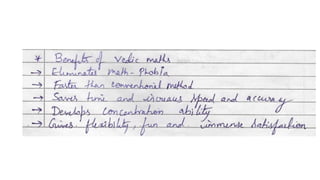 * Benefits of Vedic maths
→ Eliminates math-Phobia
→ Faster than conventional method
→ Saves time and increases speed and accuracy
→ Develops concentration ability
→ Gives flexibility, fun and immense satisfaction